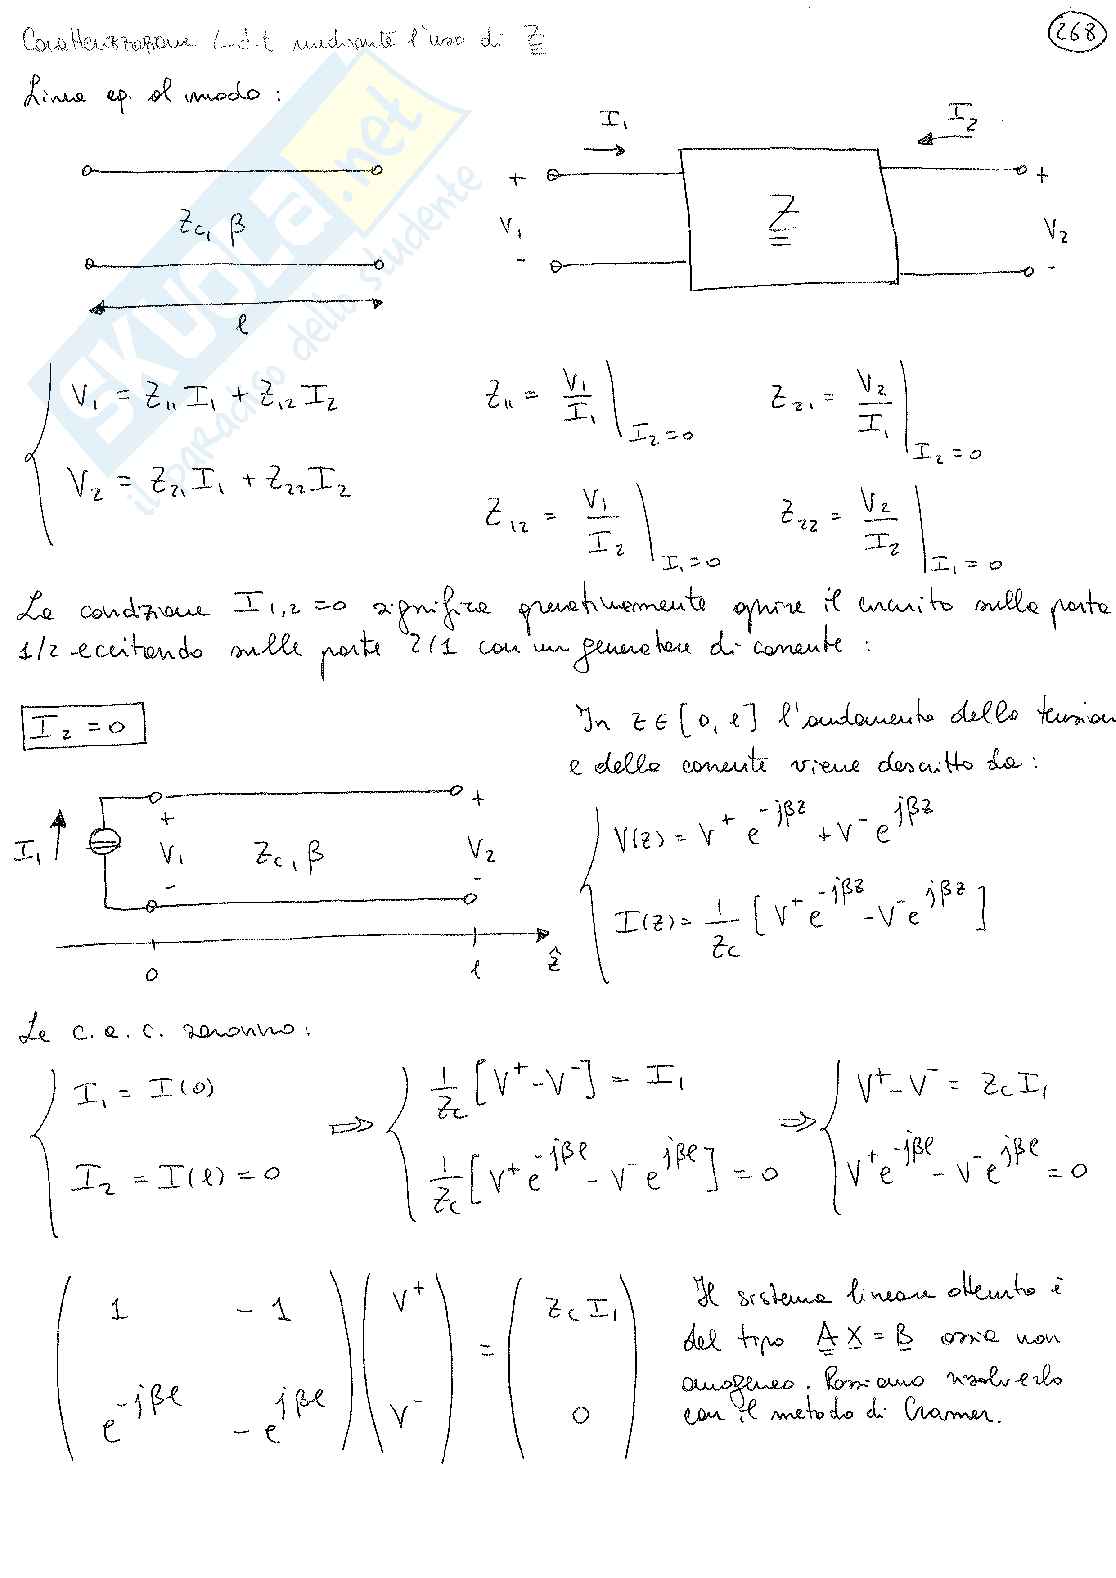 Caratterizzazione L.d.t mediante l'uso di Z
268
Linea eq. al modo :
I₁
I₂
+
+
Zc, β
V₁
Z
V₂
-
-
l
V₁ = Z₁₁ I₁ + Z₁₂ I₂
V₂ = Z₂₁ I₁ + Z₂₂ I₂
Z₁₁ = V₁/I₁ |I₂=0
Z₂₁ = V₂/I₁ |I₂=0
Z₁₂ = V₁/I₂ |I₁=0
Z₂₂ = V₂/I₂ |I₁=0
La condizione I₁,₂ =0 significa operativamente aprire il circuito sulla porta
1/2 eccitando sulle porte 2/1 con un generatore di corrente :
I₂ = 0
In z ∈ [0, l] l'andamento della tension
e della corrente viene descritto da :
+
+
I₁
V₁
Zc, β
V₂
-
-
0
l
ẑ
V(z) = V⁺ e^-jβz + V⁻ e^jβz
I(z) = 1/Zc [V⁺ e^-jβz - V⁻ e^jβz]
Le c. a. c. saranno :
I₁ = I(0)
I₂ = I(l) = 0
⇒
1/Zc [V⁺ - V⁻] = I₁
1/Zc [V⁺ e^-jβl - V⁻ e^jβl] = 0
⇒
V⁺ - V⁻ = Zc I₁
V⁺ e^-jβl - V⁻ e^jβl = 0
1 -1
e^-jβl -e^jβl
V⁺
V⁻
=
Zc I₁
0
Il sistema lineare ottenuto è
del tipo A X = B ossia non
omogeneo. Possiamo risolverlo
con il metodo di Cramer.
SKUOLA.net
il paradiso dello studente